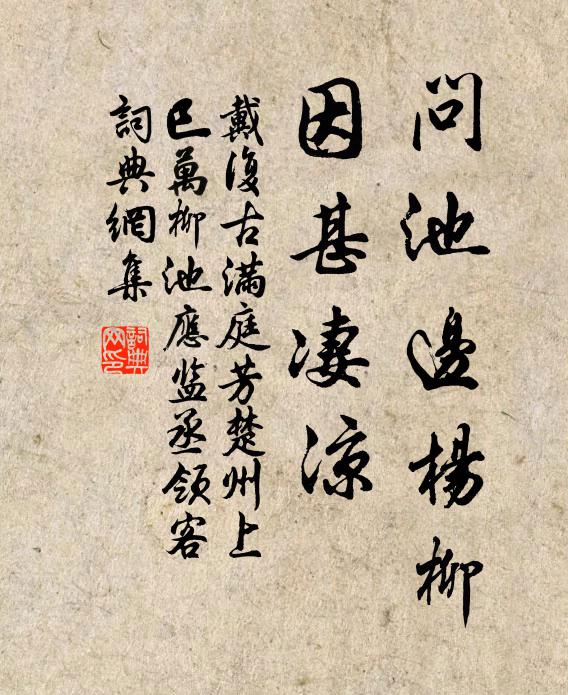 問池邊楊柳
因甚淒涼
戴復古滿庭芳楚州上
巳萬柳池應監丞領客
詞典網集
詞典
网印